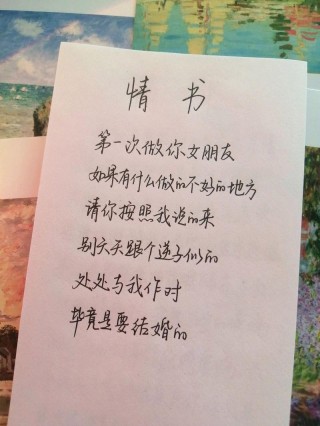 情书
第一次做你女朋友
如果有什么做的不好的地方
请你按照我说的来
别天天跟个逆子似的
处处与我作对
毕竟是要结婚的